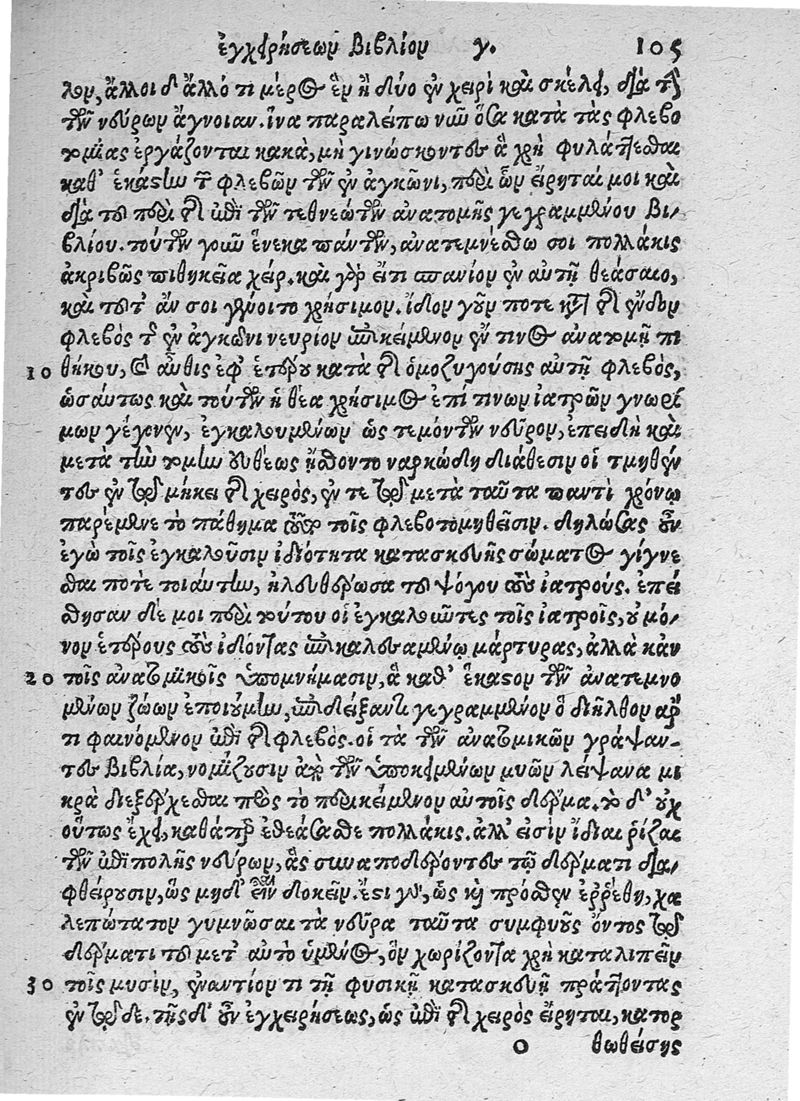 ἐγχειρήσεων Βιβλίον γ. 105
λον, ἄλλοι δ' ἄλλό τι μέρος ἓν ἢ δύο ἐν χειρὶ καὶ σκέλει, διὰ τὴν
τῶν νεύρων ἄγνοιαν. ἵνα παραλείπω νῦν ὅσα κατὰ τὰς φλεβο
τομίας ἐργάζονται κακὰ, μὴ γινώσκοντες ἃ χρὴ φυλάττεσθαι
καθ' ἑκάστην τῶν φλεβῶν τῶν ἐν ἀγκῶνι, περὶ ὧν εἴρηταί μοι καὶ
διὰ τοῦ περὶ τῆς ἐπὶ τῶν τεθνεώτων ἀνατομῆς γεγραμμένου Βι-
βλίου. τούτων γοῦν ἕνεκα πάντων, ἀνατεμνέσθω σοι πολλάκις
ἀκριβῶς πιθηκεῖα χείρ. καὶ γὰρ εἴ τι σπανίον ἐν αὐτῇ θεάσαιο,
καὶ τοῦτ' ἄν σοι γένοιτο χρήσιμον. ἴδον γοῦν ποτε κατὰ τῆς ἔνδον
φλεβὸς τῶν ἐν ἀγκῶνι νευρίον ἐπικείμενον ἔν τινος ἀνατομῇ πι
10 θήκου, καὶ αὖθις ἐφ' ἑτέρου κατὰ τῆς ὁμοζυγούσης αὐτῇ φλεβὸς,
ὡσαύτως καὶ τούτων ἡ θέα χρήσιμος ἐπί τινων ἰατρῶν γνωρί
μων γέγονεν, ἐγκαλουμένων ὡς τεμόντων νεῦρον, ἐπειδὴ καὶ
μετὰ τὴν τομὴν εὐθέως ᾔσθοντο ναρκώδη διάθεσιν οἱ τμηθέν
τες ἐν τῷ μήκει τῆς χειρὸς, ἔν τε τῷ μετὰ ταῦτα παντὶ χρόνῳ
παρέμεινε τὸ πάθημα τοῦτο τοῖς φλεβοτομηθεῖσιν. δηλώσας οὖν
ἐγὼ τοῖς ἐγκαλοῦσιν ἰδιότητα κατασκευῆς σώματος γίγνε
σθαι ποτὲ τοιαύτην, ἠλευθέρωσα τοῦ ψόγου τοὺς ἰατρούς. ἐπεί
σθησαν δέ μοι περὶ τούτου οἱ ἐγκαλοῦντες τοῖς ἰατροῖς, οὐ μό-
νον ἑτέρους τοὺς ἰδόντας ἐπικαλεσαμένῳ μάρτυρας, ἀλλὰ κἀν
20 τοῖς ἀνατομικοῖς ὑπομνήμασιν, ἃ καθ' ἕκαστον τῶν ἀνατεμνο
μένων ζώων ἐποιούμην, ἐπιδείξαντι γεγραμμένον ὃ διῆλθον ἄρ
τι φαινόμενον ἐπὶ τῆς φλεβός. οἱ τὰ τῶν ἀνατομικῶν γράψαν-
τες Βιβλία, νομίζουσιν ἀπὸ τῶν ὑποκειμένων μυῶν λείψανα μι
κρὰ διεξέρχεσθαι πρὸς τὸ περικείμενον αὐτοῖς δέρμα. τὸ δ' οὐχ
οὕτως ἔχει, καθάπερ ἐθεάσασθε πολλάκις. ἀλλ' εἰσὶν ἴδιαι ῥίζαι
τῶν ἐπιπολῆς νεύρων, ἃς συναποδέροντες τῷ δέρματι δια-
φθείρουσιν, ὡς μηδ' εἶναι δοκεῖν. ἔστι γὰρ, ὡς καὶ πρόσθεν ἐρρέθη, χα
λεπώτατον γυμνῶσαι τὰ νεῦρα ταῦτα συμφυοῦς ὄντος τῷ
δέρματι τοῦ μετ' αὐτὸ ὑμένος, ὃν χωρίζοντα χρὴ καταλιπεῖν
30 τοῖς μυσὶν, ἐναντίον τι τῇ φυσικῇ κατασκευῇ πράττοντας
ἐν τῷδε. τῆς δ' οὖν ἐγχειρήσεως, ὡς ἐπὶ τῆς χειρὸς εἴρηται, κατορ
o θωθείσης